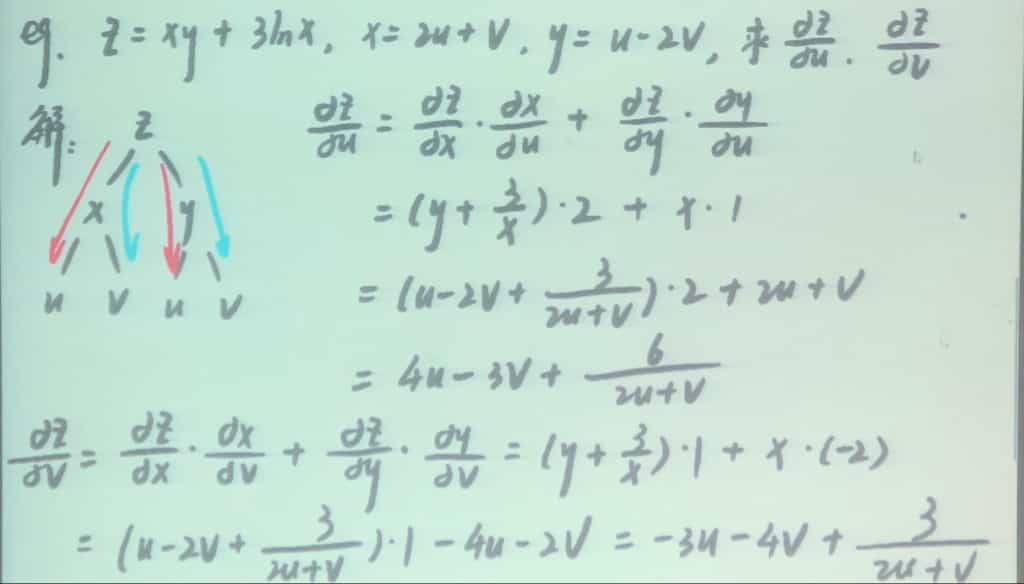 eg. z = xy + 3lnx, x = 2u + v, y = u - 2v, 求 ∂z/∂u. ∂z/∂v
解: ∂z/∂u = ∂z/∂x · ∂x/∂u + ∂z/∂y · ∂y/∂u
z
= (y + 3/x) · 2 + x · 1
x y
= (u - 2v + 3/(2u+v)) · 2 + 2u + v
u v u v
= 4u - 3v + 6/(2u+v)
∂z/∂v = ∂z/∂x · ∂x/∂v + ∂z/∂y · ∂y/∂v = (y + 3/x) · 1 + x · (-2)
= (u - 2v + 3/(2u+v)) · 1 - 4u - 2v = -3u - 4v + 3/(2u+v)